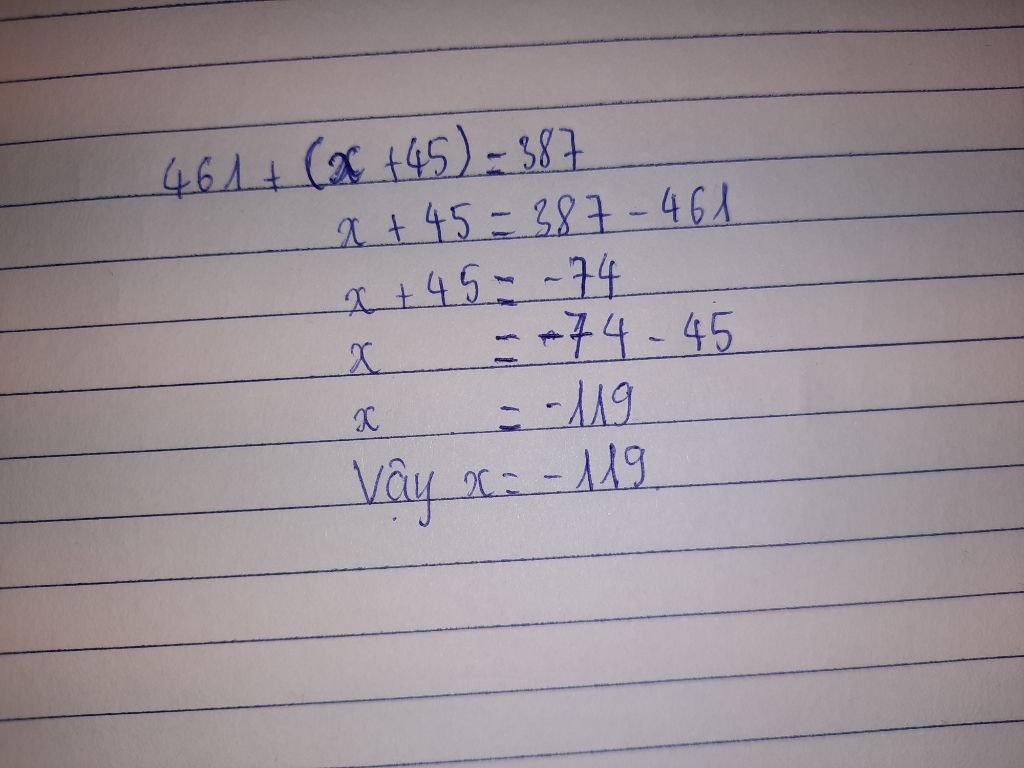 461 + (x + 45) = 387
x + 45 = 387 - 461
x + 45 = -74
x = -74 - 45
x = -119
Vậy x = -119